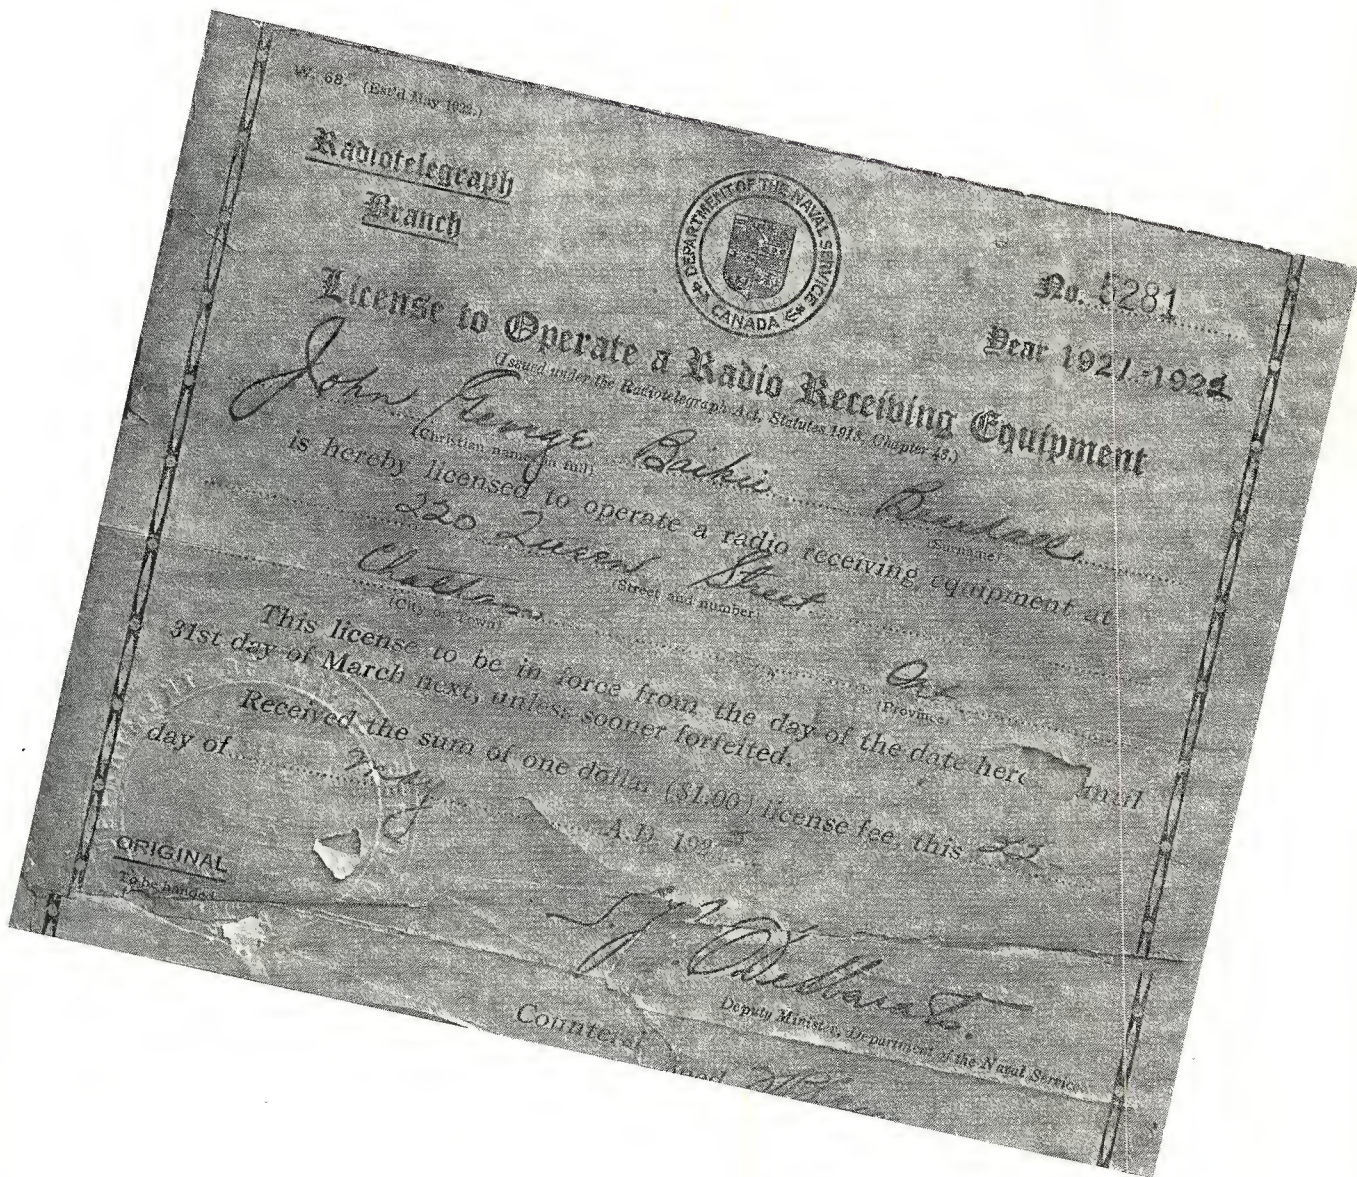 W. 68. (Est'd May 1922.)
Radiotelegraph
Branch
DEPARTMENT OF THE NAVAL SERVICE
CANADA
No. 5281
Year 1921-1922
License to Operate a Radio Receiving Equipment
(Issued under the Radiotelegraph Act, Statutes 1913, Chapter 43.)
John George Baikie
(Christian name in full) (Surname)
is hereby licensed to operate a radio receiving equipment at
220 Queen Street
(Street and number)
Chatham Ont
(City or Town) (Province)
This license to be in force from the day of the date here until
31st day of March next, unless sooner forfeited.
Received the sum of one dollar ($1.00) license fee, this 22
day of May A.D. 192
ORIGINAL
To be handed
Deputy Minister, Department of the Naval Service